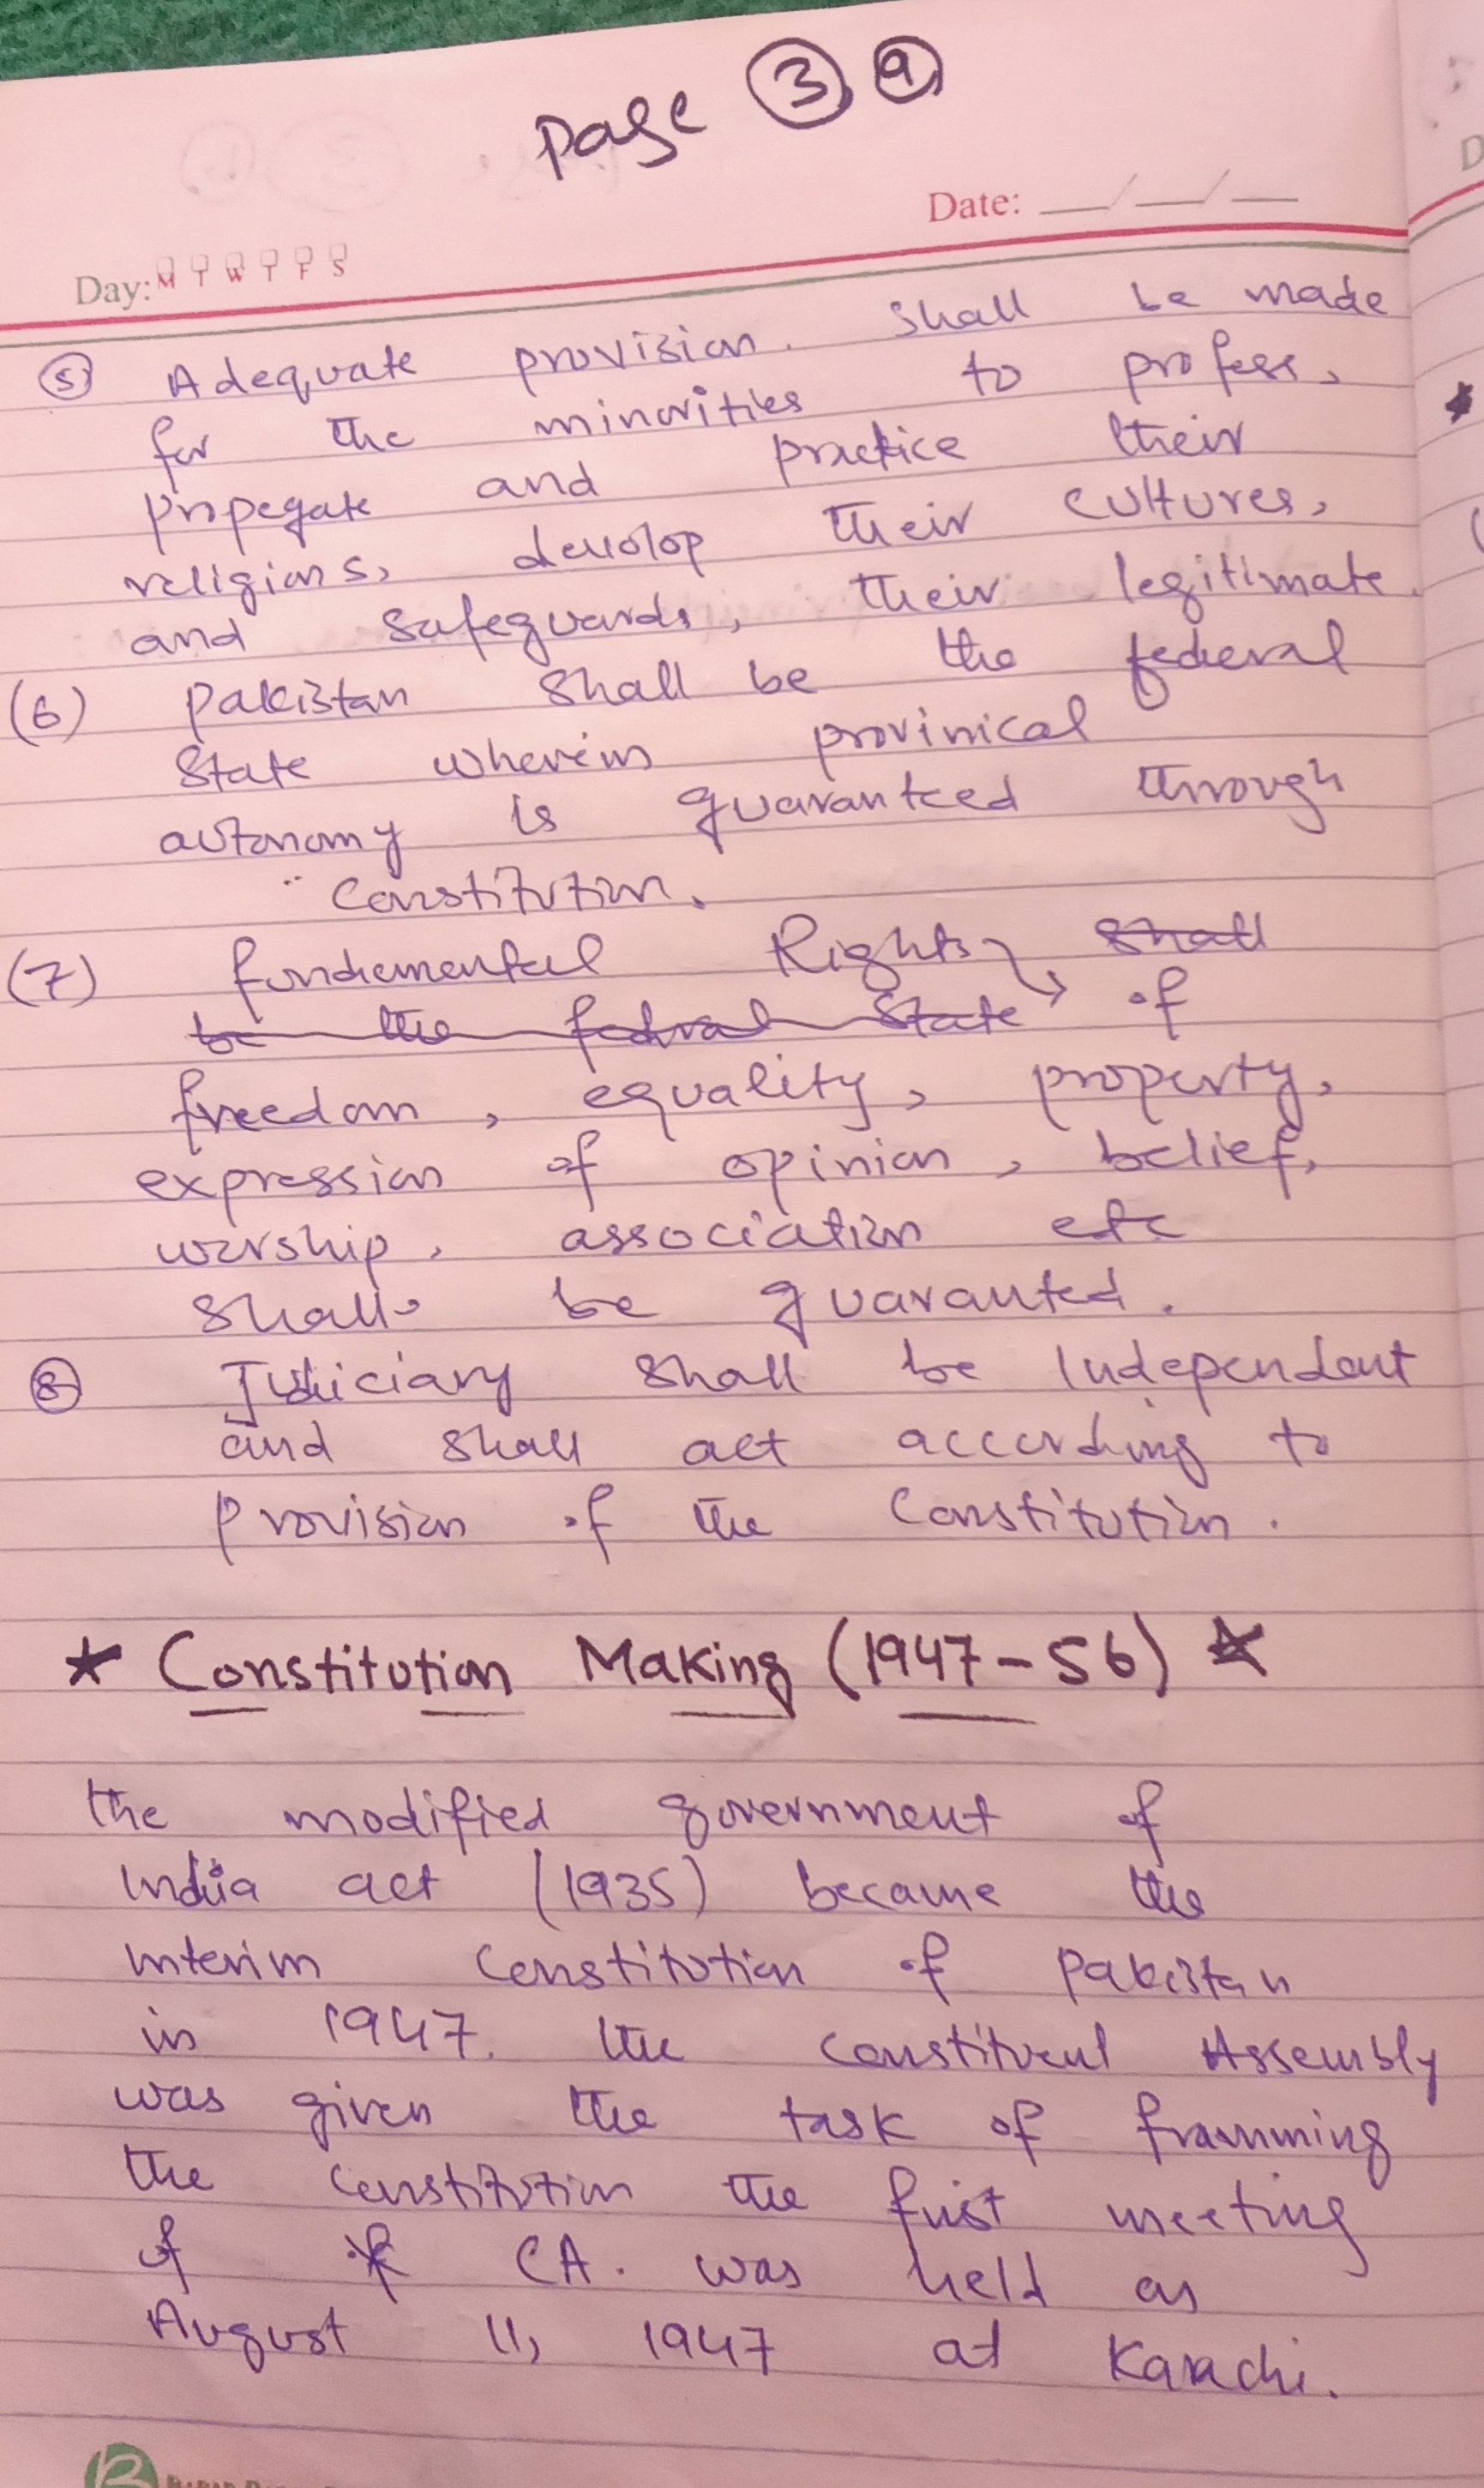 Page 3, a
Date: __/__/__
Day: M T W T F S
(5) Adequate provision. shall be made
for the minorities to profess,
propegate and practice their
religions, devolop their cultures,
and safeguards, their legitimate.
(6) pakistan shall be the federal
State wherein provinical
autonomy is guaranteed through
Constitution.
(7) fundemental Rights, shall
be the fedral state of
freedom, equality, property,
expression of opinion, belief,
worship, association etc
shall be guaranted.
(8) Judiciary shall be Independent
and shall act according to
provision of the Constitution.
* Constitution Making (1947-56) *
the modified government of
India act (1935) became the
interim Constitution of pakistan
in 1947. the constituent Assembly
was given the task of framming
the Constitution the first meeting
of of CA. was held on
August 11, 1947 at Karachi.